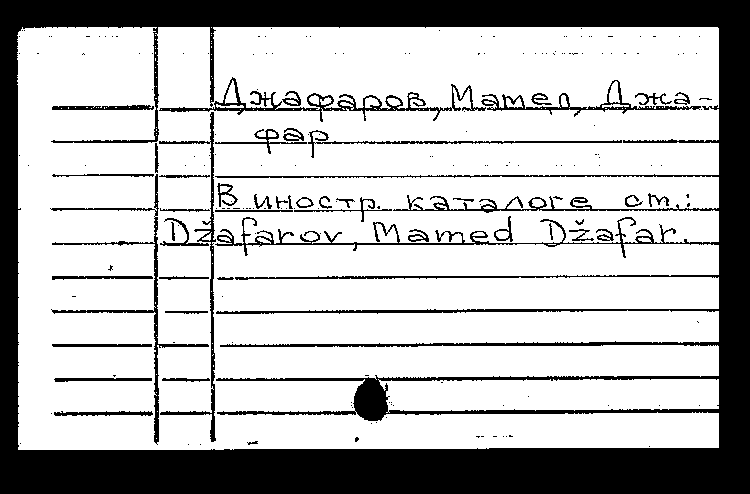 Джафаров, Мамед Джа-
фар
В иностр. каталоге см.:
Džafarov, Mamed Džafar.